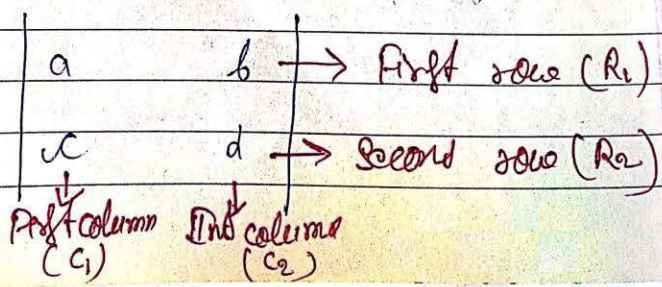 | a b | → First row (R₁)
| c d | → Second row (R₂)
First column IInd column
(C₁) (C₂)